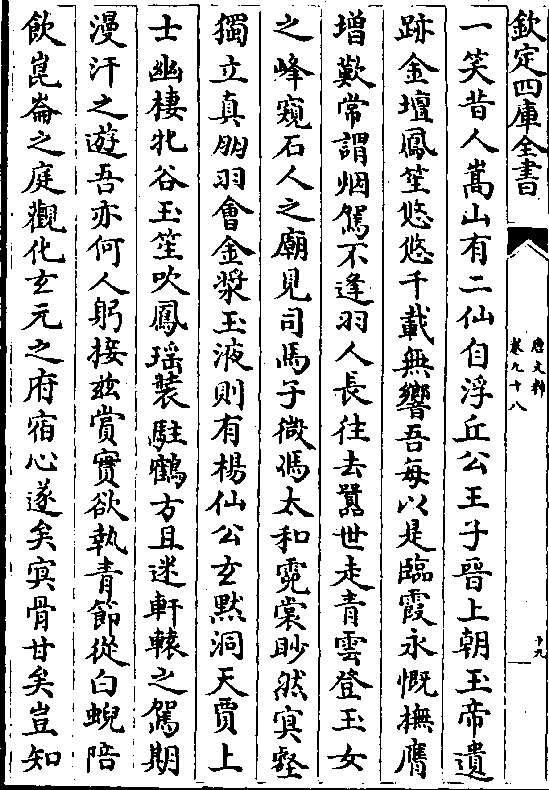 欽定四庫全書
唐文粹
卷九十八
十九
一笑昔人嵩山有二仙自浮丘公王子晉上朝玉帝遺
跡金壇鳳笙悠悠千載無響吾每以是臨霞永慨撫膺
增歎常謂烟駕不逢羽人長往去囂世走青雲登玉女
之峰窺石人之廟見司馬子微馮太和霓裳眇然㝠壑
獨立真朋羽會金漿玉液則有楊仙公玄默洞天賈上
士幽棲牝谷玉笙吹鳳瑶裝駐鶴方且迷軒轅之駕期
漫汗之遊吾亦何人躬接兹賞實欲執青節從白蜺陪
飲崑崙之庭觀化玄元之府宿心遂矣㝠骨甘矣豈知